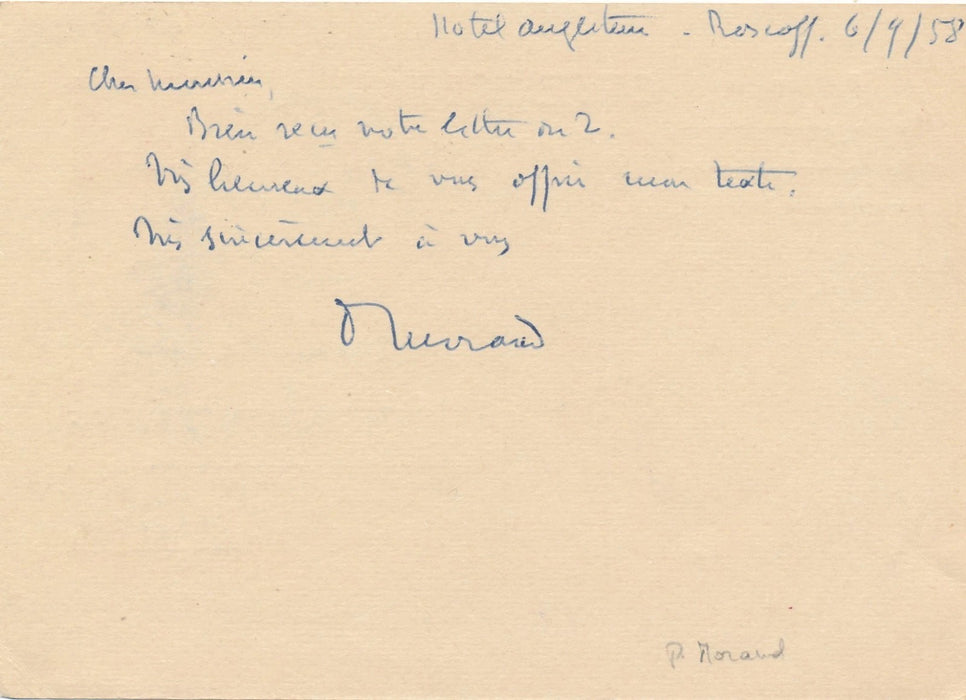 Hotel Angleterre - Roscoff. 6/9/58
Cher Monsieur,
Bien reçu votre lettre du 2.
Très heureux de vous offrir mon texte.
Très sincèrement à vous
P Morand
P. Morand